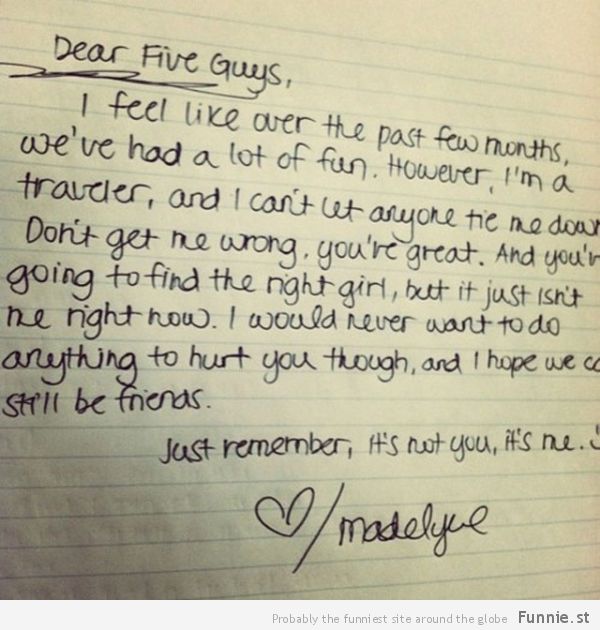 Dear Five Guys,
I feel like over the past few months,
we've had a lot of fun. However, I'm a
traveler, and I can't let anyone tie me down
Don't get me wrong, you're great. And you'r
going to find the right girl, but it just isn't
me right now. I would never want to do
anything to hurt you though, and I hope we ca
still be friends.
Just remember, it's not you, it's me. :)
♡/madelyne
Probably the funniest site around the globe Funnie.st